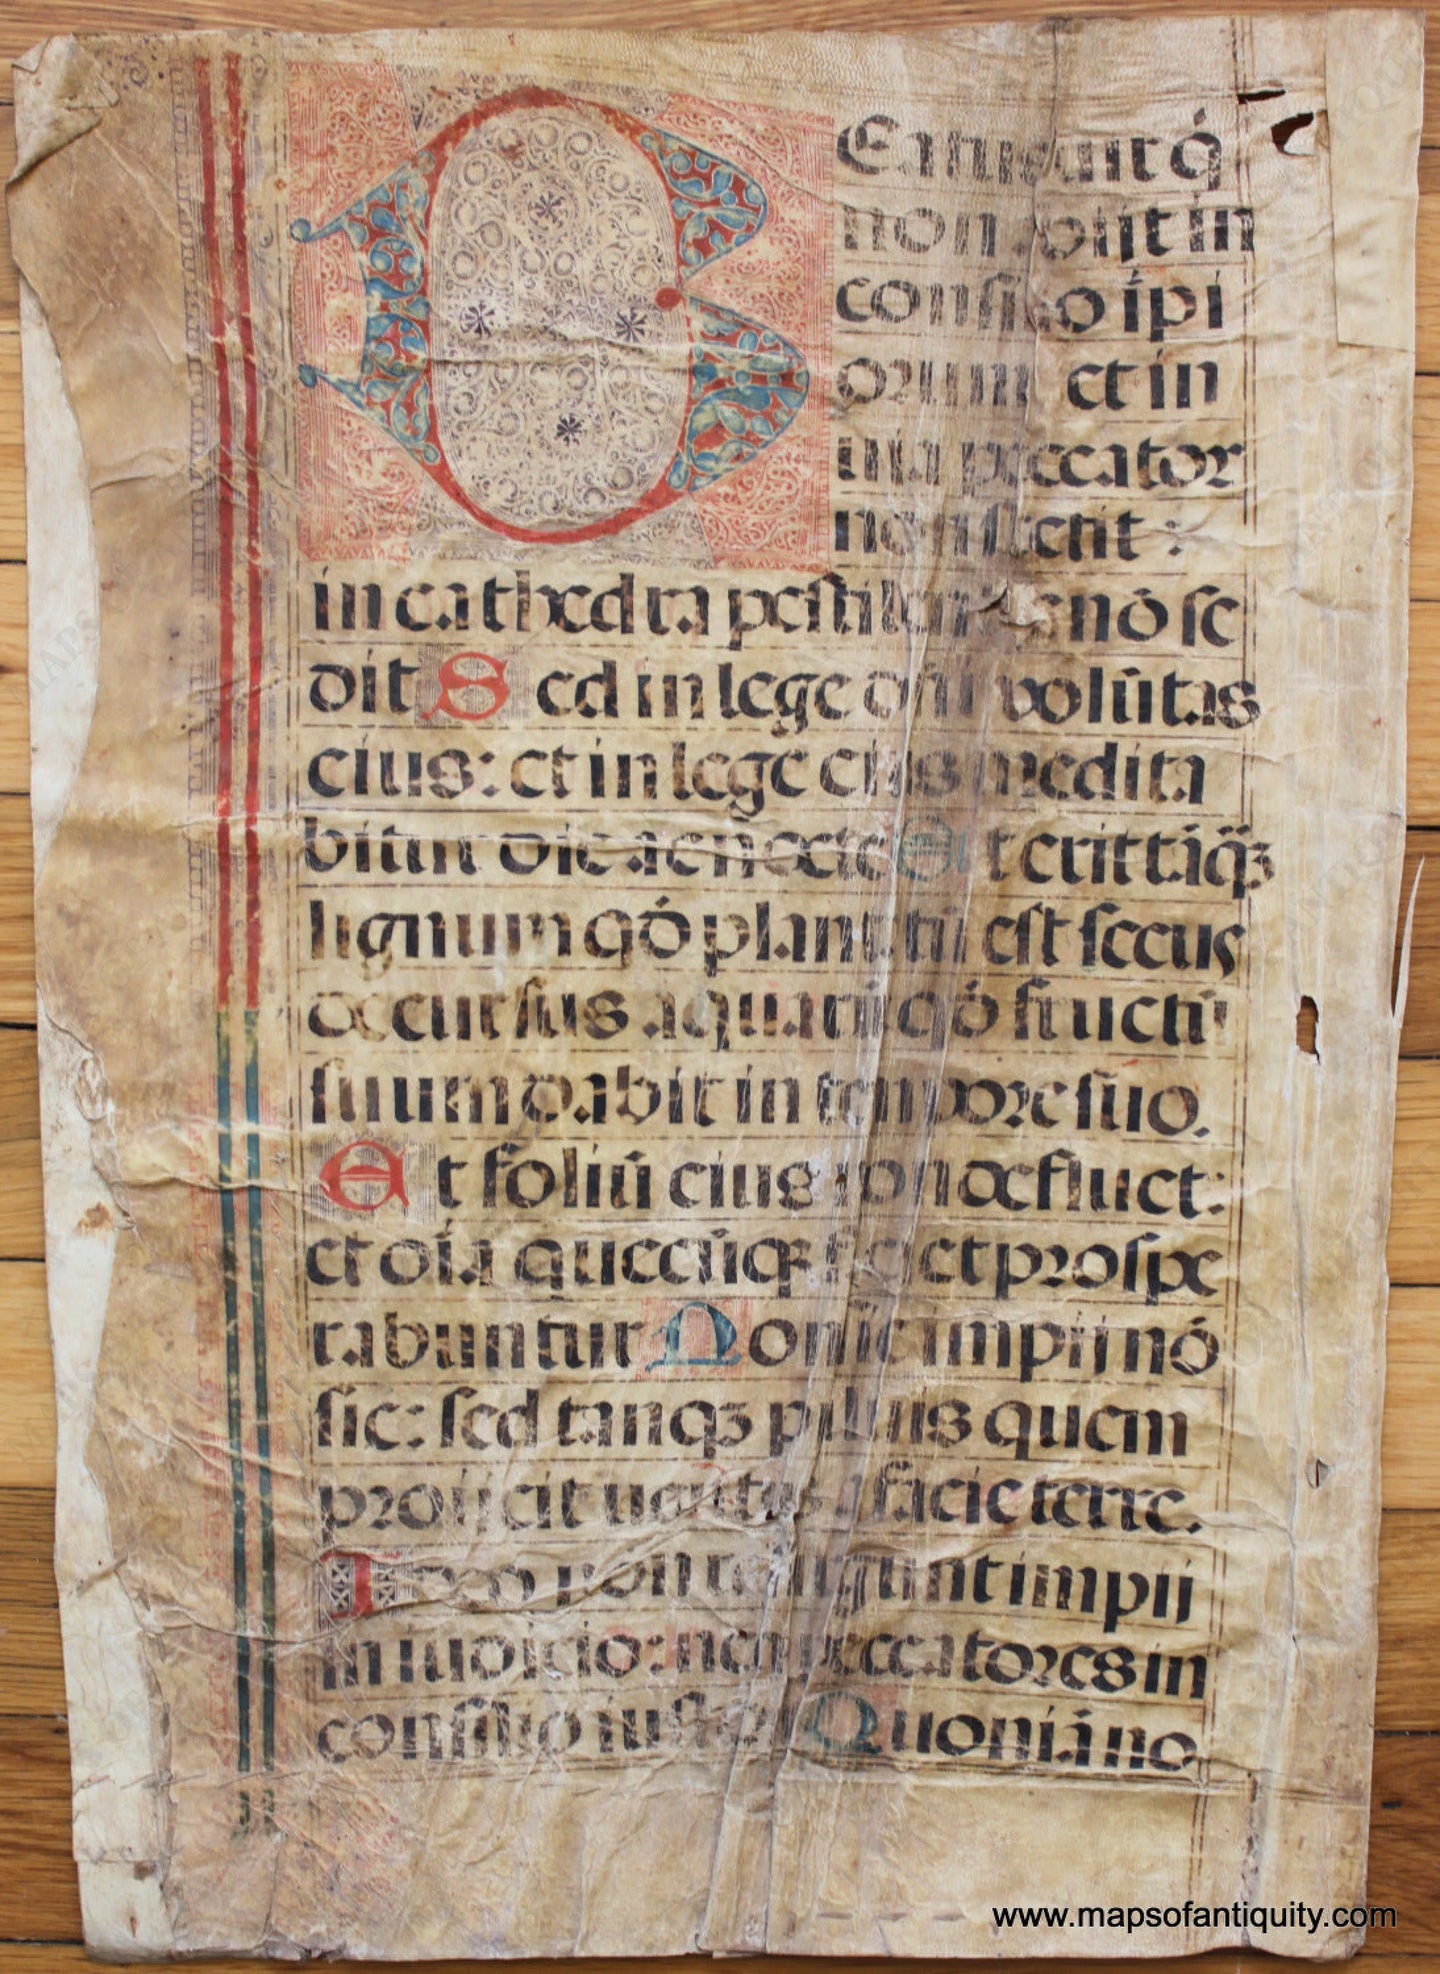 Beatus uir q̇
non abijt in
consilio īpi
orum et in
uia peccator
non stetit :
in cathedra pestilentie nō se
dit Sed in lege dn̄i volūtas
eius: et in lege eius medita
bitur die ac nocte Et erit tāq̄ꝫ
lignum qō plantatū est secus
decursus aquarū qō fructū
suum dabit in tempore suo.
Et foliū eius non defluet:
et oīa quecūqꝫ faciet prospe
rabuntur Non sic impij nō
sic: sed tanqꝫ puluis quem
proijcit uentus a facie terre.
Ideo non resurgunt impij
in iudicio: neqꝫ peccatores in
consilio iustoꝝ Quoniā no
www.mapsofantiquity.com